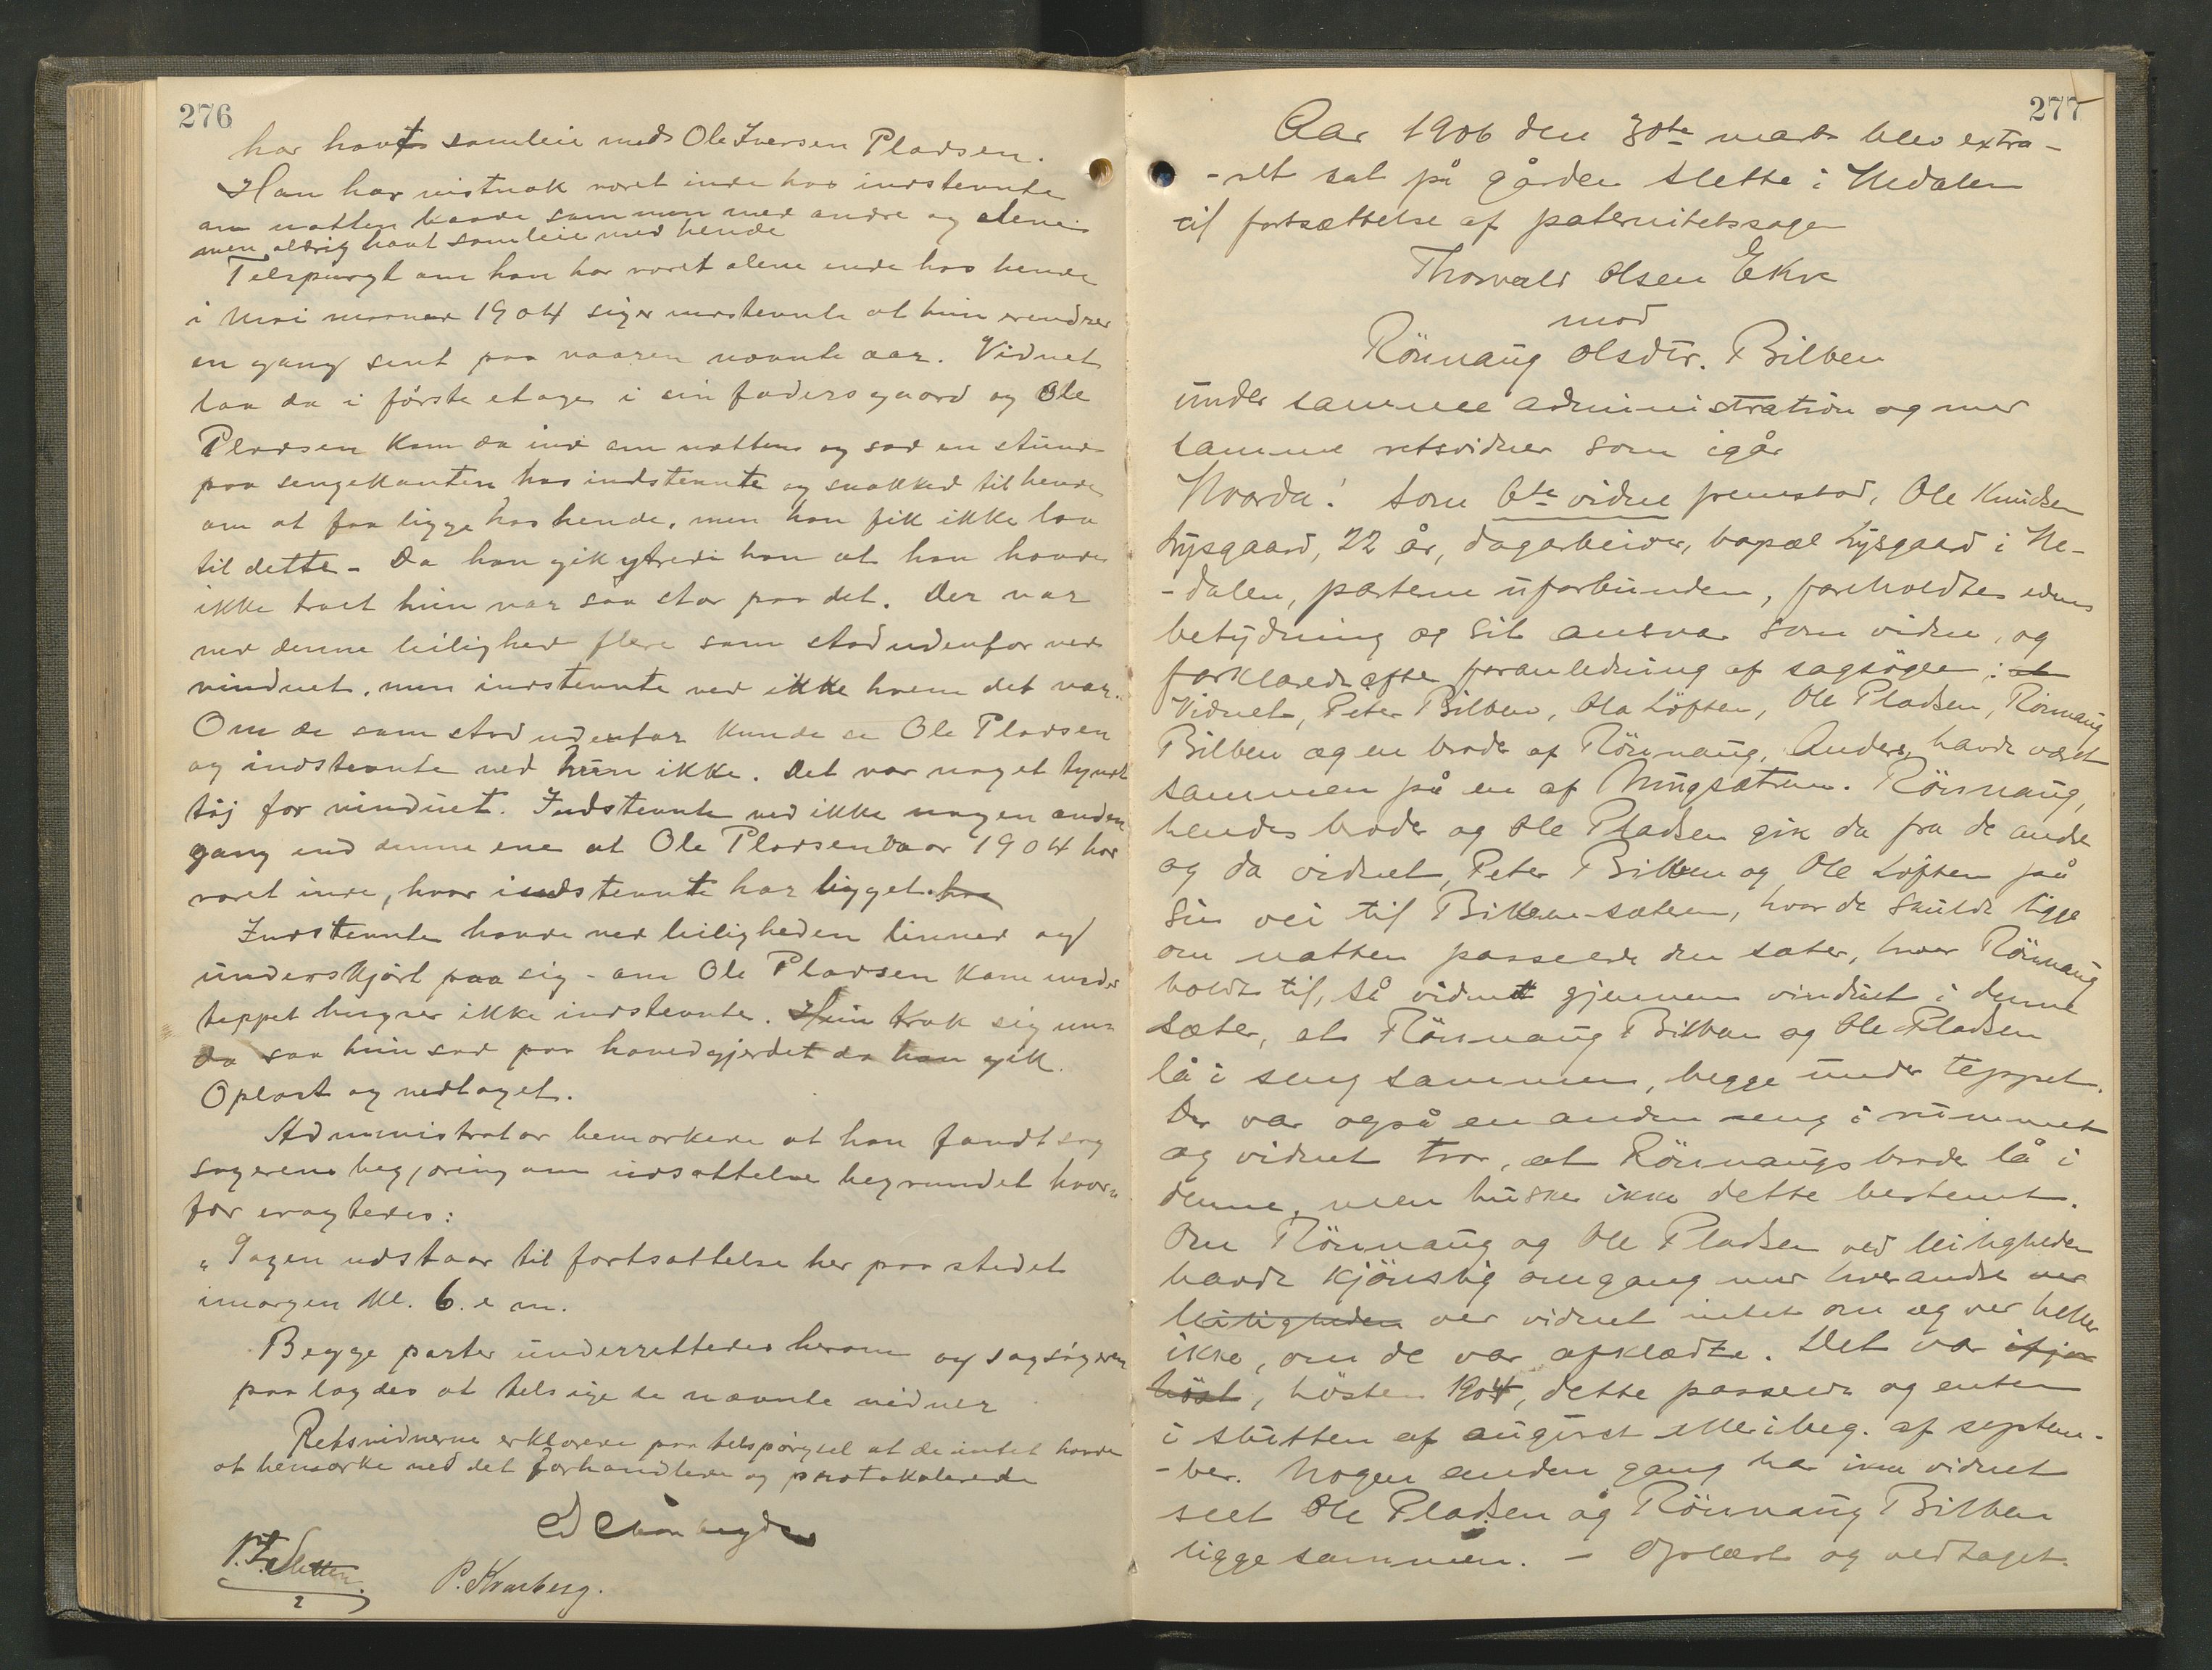 276
har havt samleie med Ole Iversen Pladsen.
Han har vistnok været inde hos indstevnte
om natten baade sammen med andre og alene
men aldrig havt samleie med hende
Tilspurgt om han har været alene inde hos hende
i Mai maaned 1904 siger indstevnte at hun erindrer
en gang sent paa vaaren nævnte aar. Vidnet
laa da i første etage i sin fadersgaard og Ole
Pladsen kom da ind om natten og sad en stund
paa sengekanten hos indstevnte og snakked til hende
om at faa ligge hos hende, men han fik ikke lov
til dette - Da han gik ytrede han at han havde
ikke troet hun var saa stor paa det. Der var
ved denne leilighed flere som stod udenfor ved
vinduet, men indstevnte ved ikke hvem det var.
Om de som stod udenfor kunde se Ole Pladsen
og indstevnte ved hun ikke. Det var noget tyndt
tøj for vinduet. Indstevnte ved ikke nogen anden
gang end denne ene at Ole Pladsen vaar 1904 har
været inde, hvor indstevnte har ligget. hos
Indstevnte havde ved leiligheden linned og
underskjørt paa sig - om Ole Pladsen kom under
teppet hugser ikke indstevnte. Hun trak sig und
da saa hun sad paa hovedgjerdet da han gik.
Oplæst og vedtaget.
Administrator bemærkede at han fandt sag
søgerens begjæring om udsættelse begrundet hvor-
for eragtedes:
"Sagen udstaar til fortsættelse her paa stedet
imorgen Kl. 6. e m.
Begge parter underrettedes herom og sagsøgeren
paalagdes at tilsige de nævnte vidner
Retsvidnerne erklærede paa tilspørgsel at de intet havde
at bemærke ved det forhandlede og protokolerede
P. Kvarberg.
277
Aar 1906 den 30te marts blev extra-
-ret sat på gården Slette i Nedalen
til fortsættelse af paternitetssagen
Thorvald Olsen Ekre
mod
Rönnaug Olsdtr. Bilben
under samme administration og med
samme retsvidner som igår
Hvorda: Som 6te vidne fremstod, Ole Knudsen
Lysgaard, 22 år, dagarbeider, bopæl Lysgaard i Ne-
-dalen, parterne uforbunden, foreholdtes edens
betydning og sit ansvar som vidne, og
forklarede efter foranledning af sagsøgeren: at
Vidnet, Peter Bilben, Ola Löften, Ole Pladsen, Rönnaug
Bilben og en broder af Rönnaug, Anders, havde været
sammen på en af Mugsætrene. Rönnaug,
hendes broder og Ole Pladsen gik da fra de andre
og da vidnet, Peter Bilben og Ole Löften på
sin vei til Bilben-sæteren, hvor de skulde ligge
om natten passerede den sæter, hvor Rönnaug
holdt til, så vidnet gjennem vinduet i denne
sæter, at Rönnaug Bilben og Ole Pladsen
lå i seng sammen, begge under teppet.
Der var også en anden seng i rummet
og vidnet tror, at Rönnaugs broder lå i
denne, men husker ikke dette bestemt.
Om Rönnaug og Ole Pladsen ved leiligheden
havde kjönslig omgang med hverandre ved
leiligheden ved vidnet intet om og ved heller
ikke, om de var afklædte. Det var ifjor
höst, hösten 1904, dette passerede og enten
i slutten af august eller i beg. af septem-
-ber. Nogen anden gang har ikke vidnet
seet Ole Pladsen og Rönnaug Bilben
ligge sammen. - Oplæst og vedtaget.